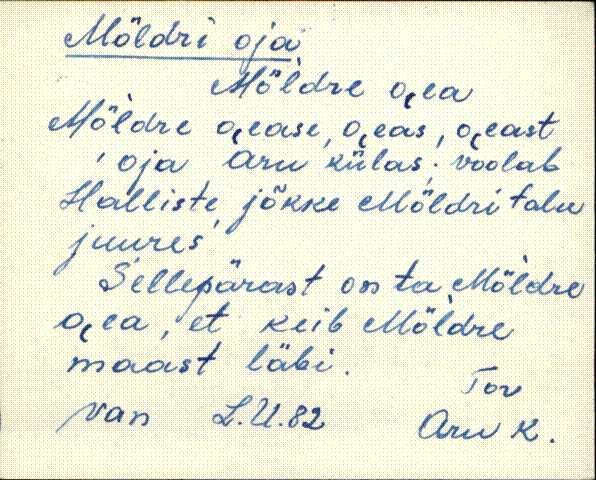 Möldri oja
Mö̀ldre o̭ea
Mö̀ldre o̭ease, o̭eas, o̭east
, oja Aru külas; voolab
Halliste jõkke Möldri talu
juures
Sellepärast on ta Mö̀ldre
o̭ea, et keib Mö̀ldre
maast läbi.
Tor
van L.U.82 Aru k.